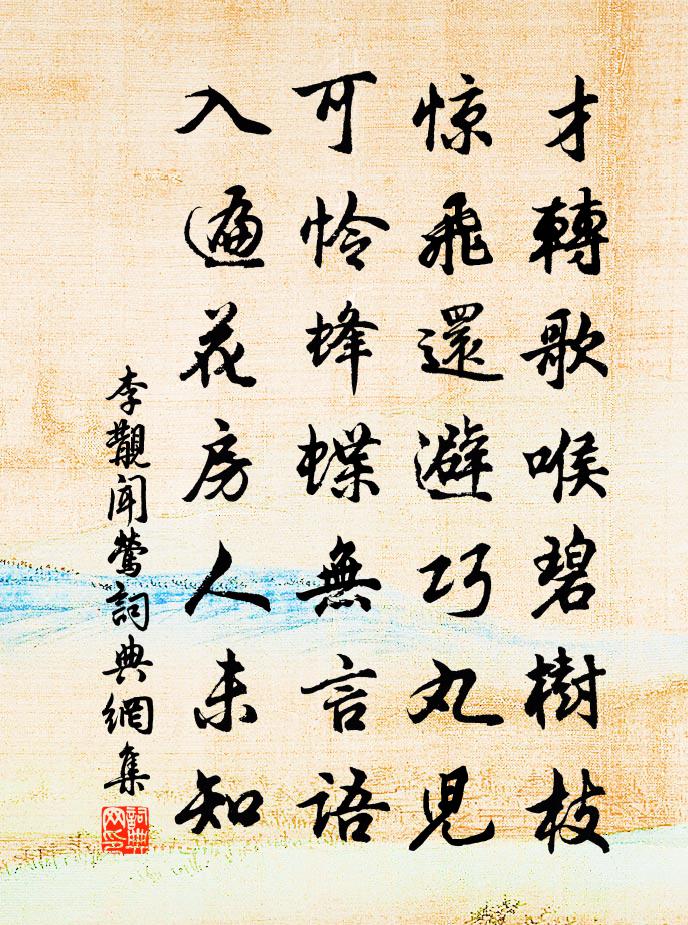 才轉歌喉碧樹枝
惊飛還避巧丸兒
可怜蜂蝶無言語
入遍花房人未知
李觀聞鶯詞典網集
詞典网印